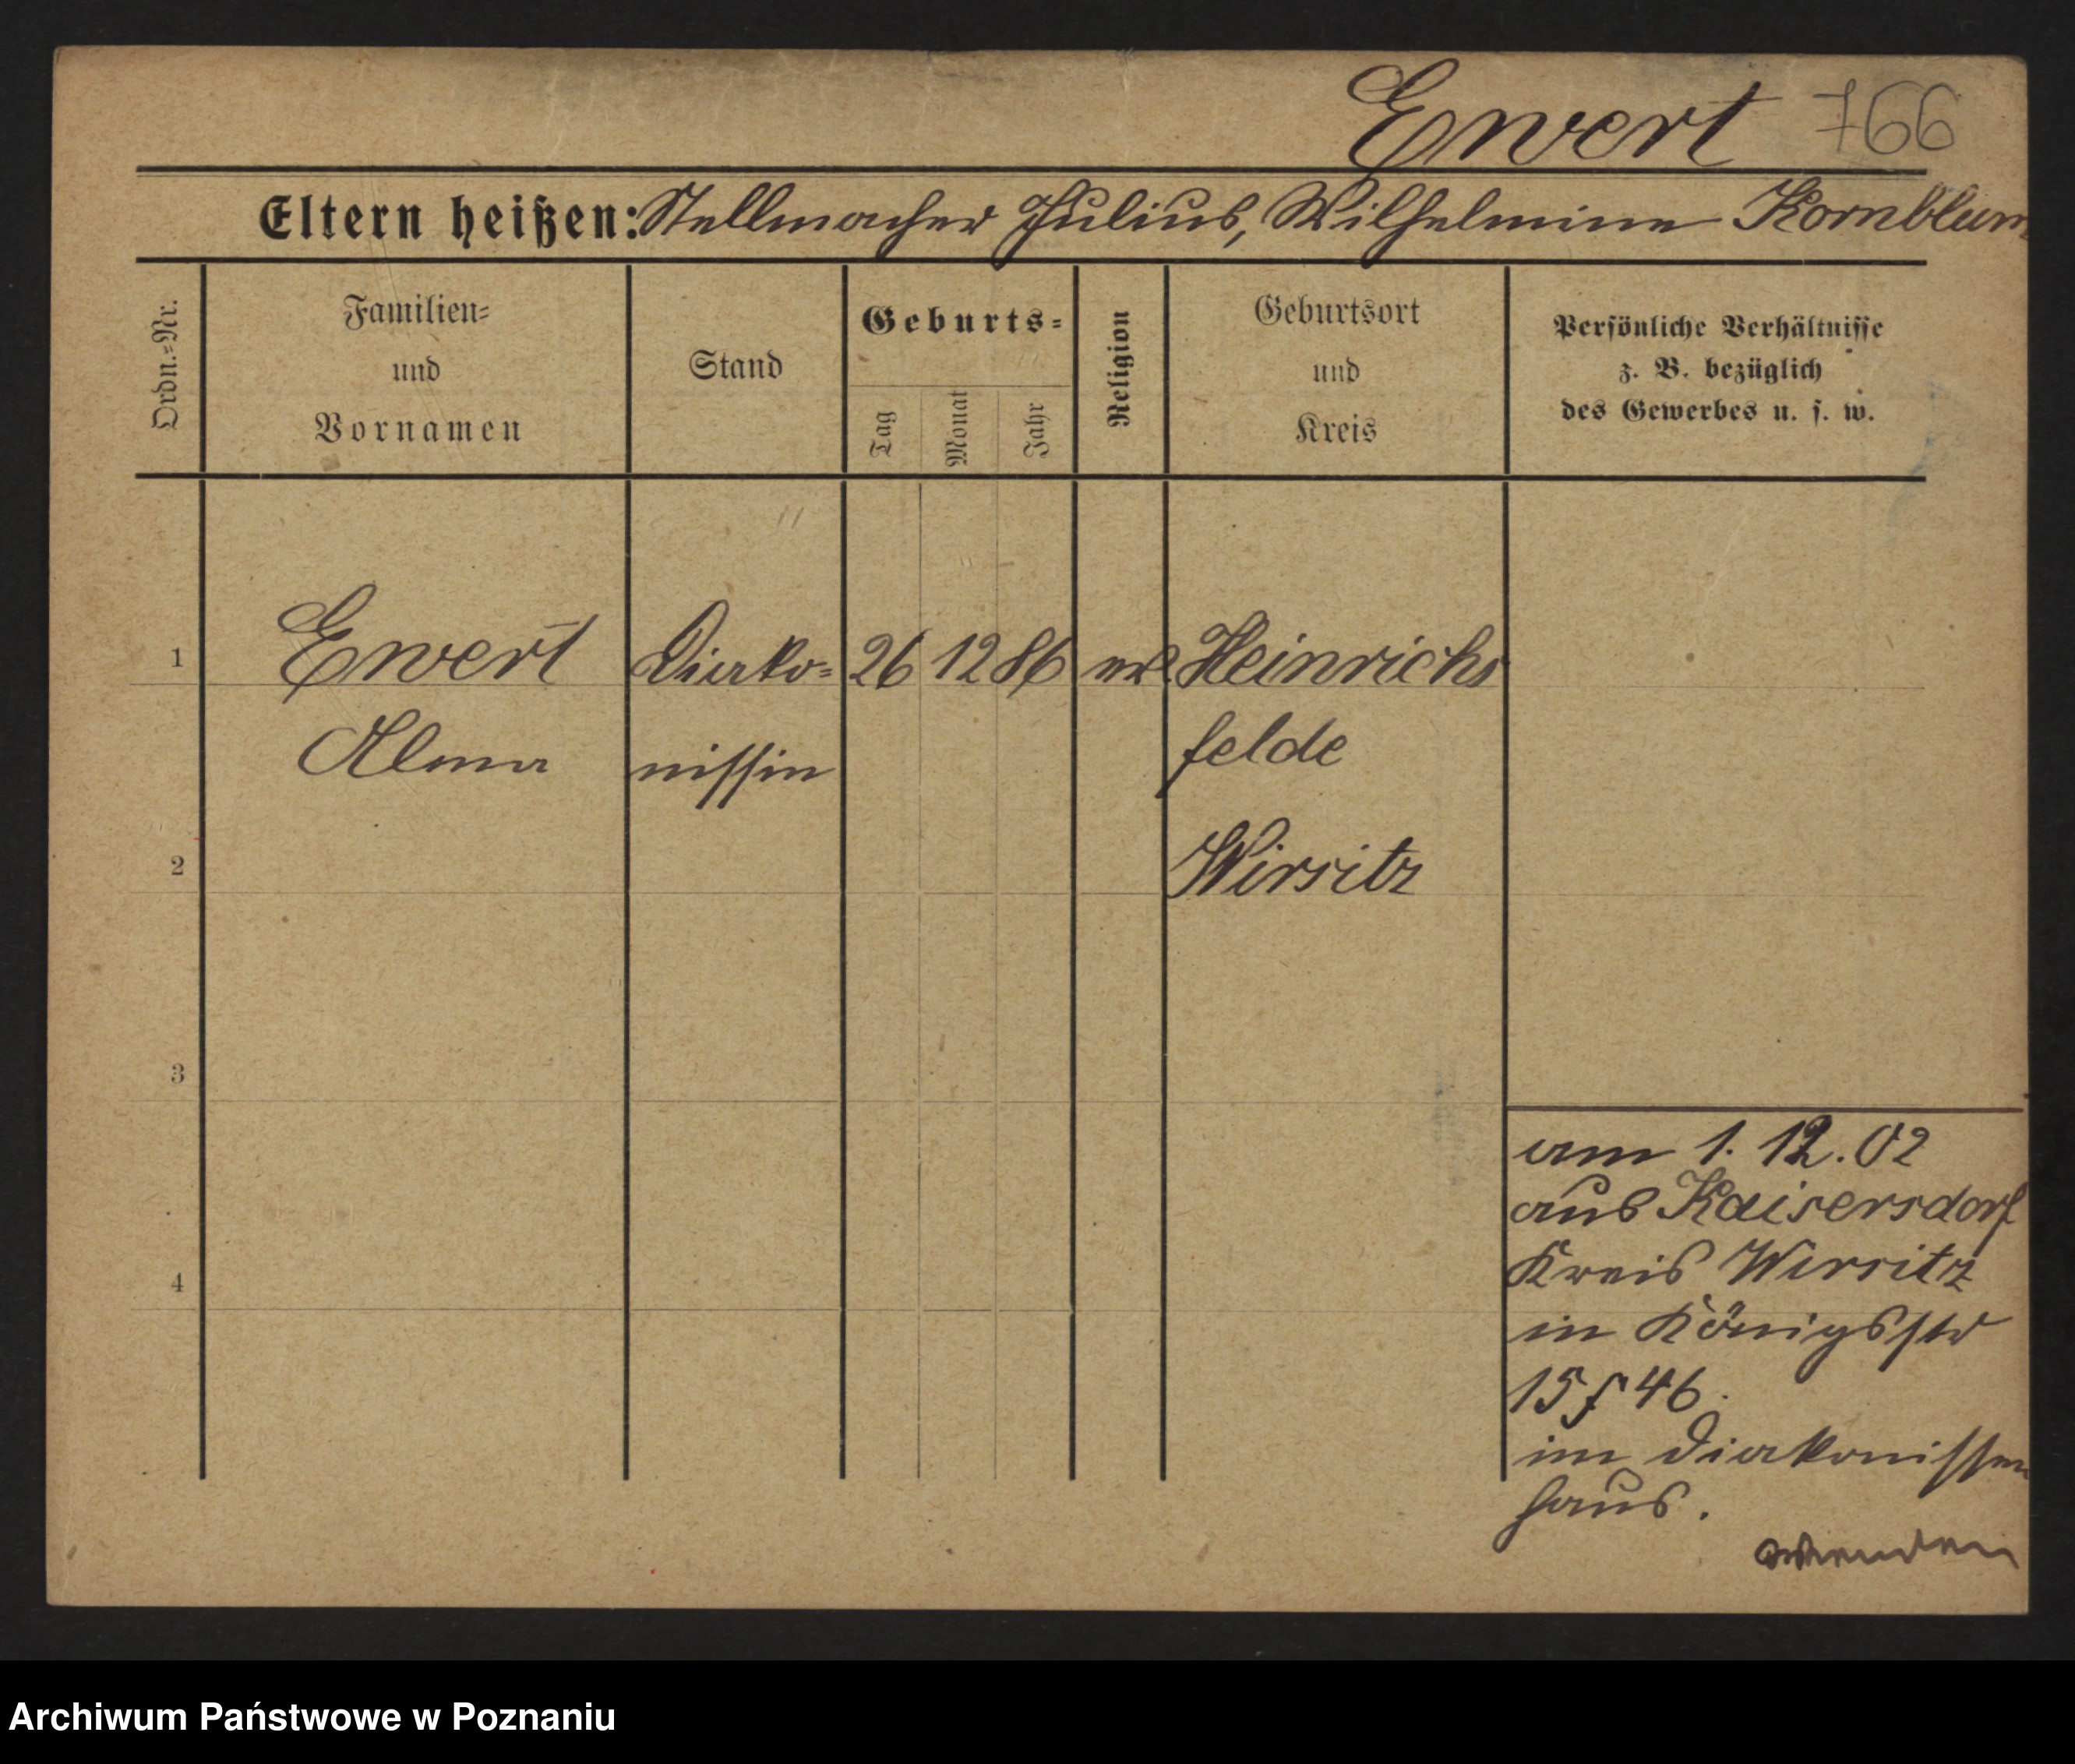 Ewert 766
Eltern heißen: Stellmacher Julius, Wilhelmine Kornblum
Ordn.=Nr.
Familien=
und
Vornamen
Stand
Geburts=
Tag
Monat
Jahr
Religion
Geburtsort
und
Kreis
Persönliche Verhältnisse
z. B. bezüglich
des Gewerbes u. s. w.
1 Ewert Diako= 26 12 86 Heinrichs
Alma nissin felde
2 Wirsitz
3
4
am 1. 12. 02
aus Kaisersdorf
Kreis Wirsitz
in Königsstr
15 46.
im Diakonissen
haus.
wenden
Archiwum Państwowe w Poznaniu